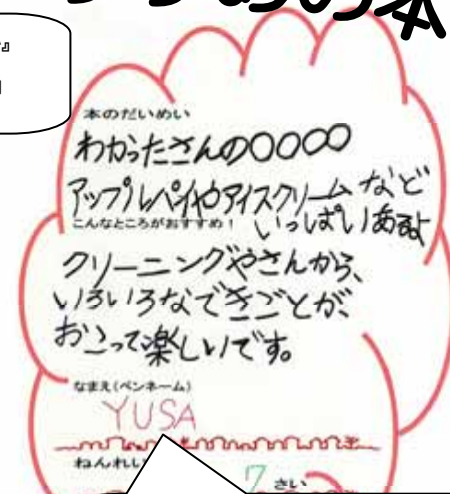 の本
本のだいめい
わかったさんの○○○○
アップルパイやアイスクリームなど
いっぱいあるよ
こんなところがおすすめ!
クリーニングやさんから、
いろいろなできごとが、
おこって楽しいです。
なまえ(ペンネーム)
YUSA
ねんれい
7さい